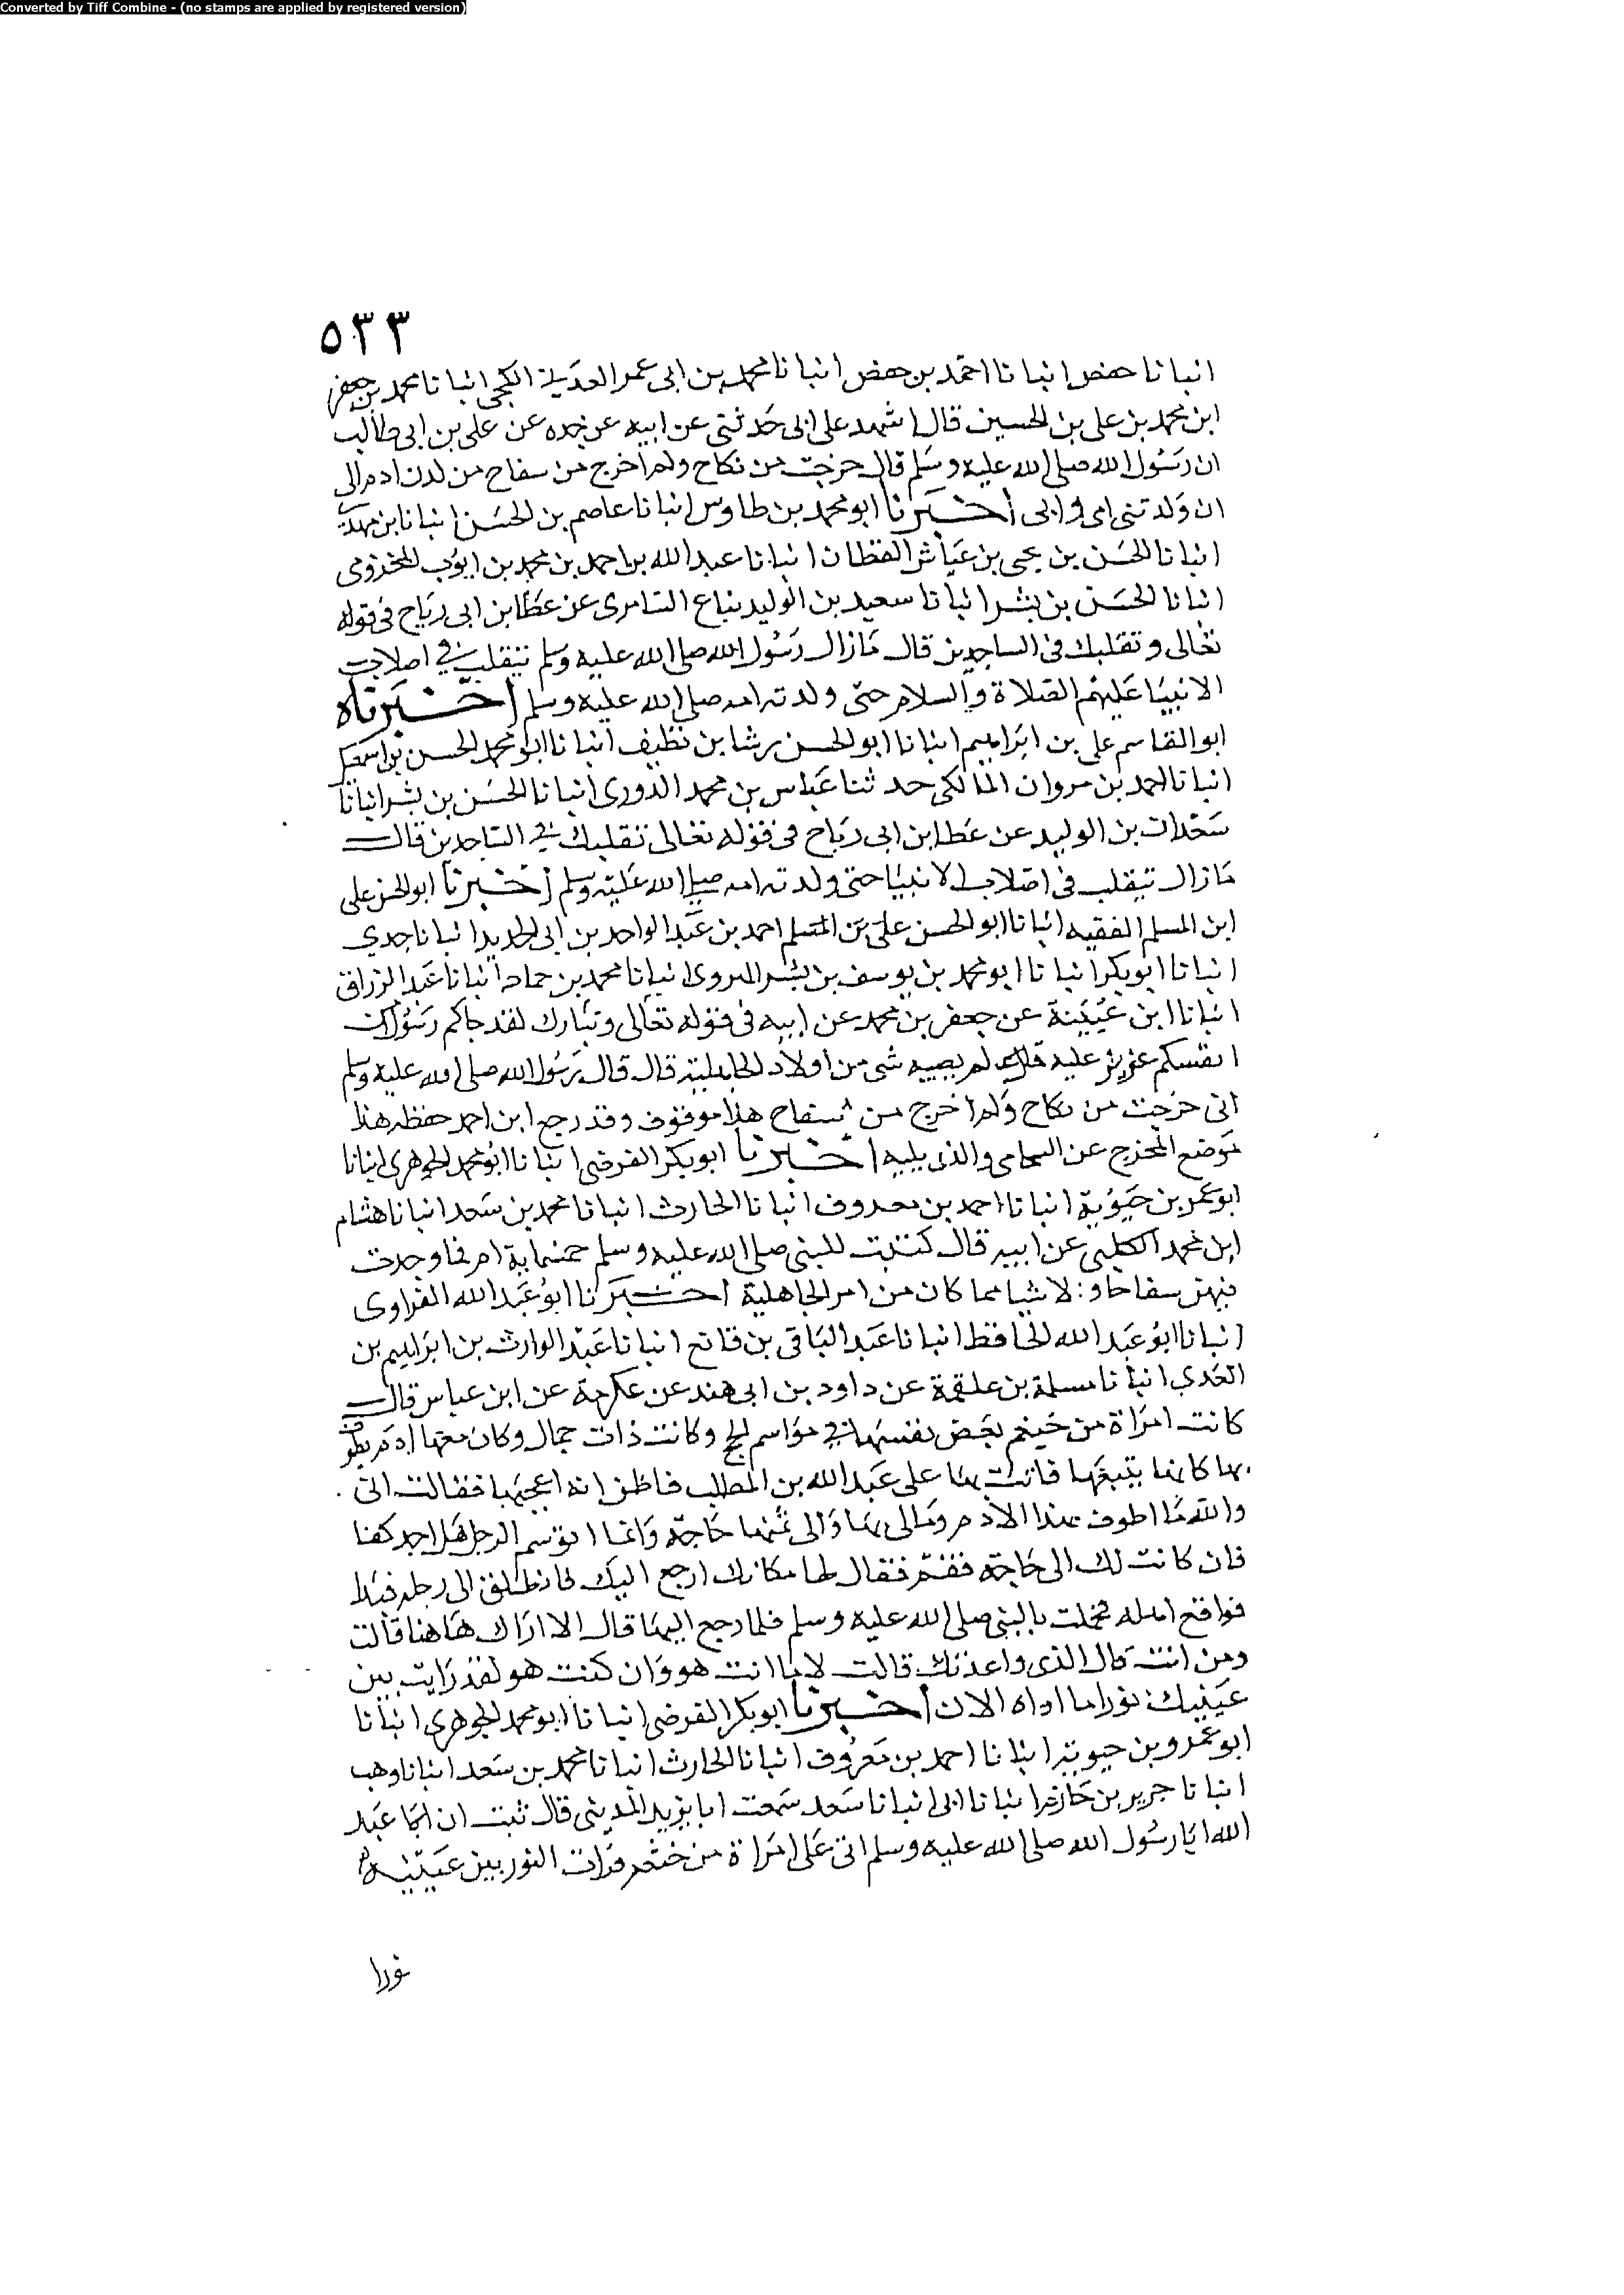 Converted by Tiff Combine - (no stamps are applied by registered version)
٥٣٣
انبانا حفص انبانا احمد بن حفص انبانا محمد بن ابى عمر العدنى المكى انبانا محمد بن جعفر
ابن محمد بن على بن الحسين قال اشهد على ابى حدثنى عن ابيه عن جده عن على بن ابى طالب
ان رسول الله صلى الله عليه وسلم قال خرجت من نكاح ولم اخرج من سفاح من لدن ادم الى
ان ولدتنى امى وابى اخبرنا ابو محمد بن طاوس انبانا عاصم بن الحسن انبانا بن مهدى
انبانا الحسن بن يحيى بن عياش القطان انبانا عبد الله بن احمد بن محمد بن ايوب المخزومى
انبانا الحسن بن بشر انبانا سعيد بن الوليد بياع السامرى عن عطا بن ابى رباح فى قوله
تعالى وتقلبك فى الساجدين قال مازال رسول الله صلى الله عليه وسلم يتقلب فى اصلاب
الانبيا عليهم الصلاة والسلام حتى ولدته امه صلى الله عليه وسلم اخبرناه
ابو القاسم على بن ابراهيم انبانا ابو الحسن رشا بن نظيف انبانا ابو محمد الحسن بن اسمعيل
انبانا احمد بن مروان المالكى حدثنا عباس بن محمد الدورى انبانا الحسن بن بشر انبانا
سعدان بن الوليد عن عطا ابن ابى رباح فى قوله تعالى تقلبك فى الساجدين قال
مازال يتقلب فى اصلاب الانبيا حتى ولدته امه صلى الله عليه وسلم اخبرنا ابو الحسن على
ابن المسلم الفقيه انبانا ابو الحسن على بن المسلم احمد بن عبد الواحد بن ابى الحديد انبانا جدي
انبانا ابو بكر انبانا ابو محمد بن يوسف بن بشر الهروى انبانا محمد بن حماد انبانا عبد الرزاق
انبانا ابن عيينة عن جعفر بن محمد عن ابيه فى قوله تعالى وتبارك لقد جاكم رسول من
انفسكم عزيز عليه قال لم يصبه شى من اولاد الجاهلية قال قال رسول الله صلى الله عليه وسلم
انى خرجت من نكاح ولم اخرج من سفاح هذا موقوف وقد رجع ابن احمد حفظه هذا
موضع المخرج عن السحامى والذى يليه اخبرنا ابو بكر الفرضى انبانا ابو محمد الجوهرى انبانا
ابو عمر بن حيوية انبانا احمد بن معروف انبانا الحارث انبانا محمد بن سعد انبانا هشام
ابن محمد الكلبى عن ابيه قال كتبت للنبى صلى الله عليه وسلم خمسماية ام فما وجدت
فيهن سفاحا ولا شيا مما كان من امر الجاهلية اخبرنا ابو عبد الله الفراوى
انبانا ابو عبد الله الحافظ انبانا عبد الباقى بن قانع انبانا عبد الوارث بن ابراهيم بن
العدي انبانا مسلمة بن علقمة عن داود بن ابى هند عن عكرمة عن ابن عباس قال
كانت امراة من خثعم تعرض نفسها فى مواسم الحج وكانت ذات جمال وكان معها ادم يطوف
بها كانها يتبعها فاتت بها على عبد الله بن المطلب فاظن انه اعجبها فقالت انى
والله ما اطوف بهذا الادم ومالى بها والى ثمنها حاجة وانما اتوسم الرجل هل اجد كفئا
فان كانت لك الى حاجة فقم فقال لها مكانك ارجع اليك فانطلق الى رحله فبدا
فواقع اهله فحملت بالنبى صلى الله عليه وسلم فلما رجع اليها قال الا اراك هاهنا قالت
ومن انت قال الذى واعدتك قالت لا ما انت هو وان كنت هو لقد رايت بين
عينيك نورا ما اراه الان اخبرنا ابو بكر الفرضى انبانا ابو محمد الجوهرى انبانا
ابو عمرو بن حيوية انبانا احمد بن معروف انبانا الحارث انبانا محمد بن سعد انبانا وهب
انبانا جرير بن حازم انبانا ابى انبانا سعد سمعت ابا يزيد المدينى قال ثبت ان ابا عبد
الله ابا رسول الله صلى الله عليه وسلم اتى على امراة من خثعم فرات النور بين عينيه
نورا